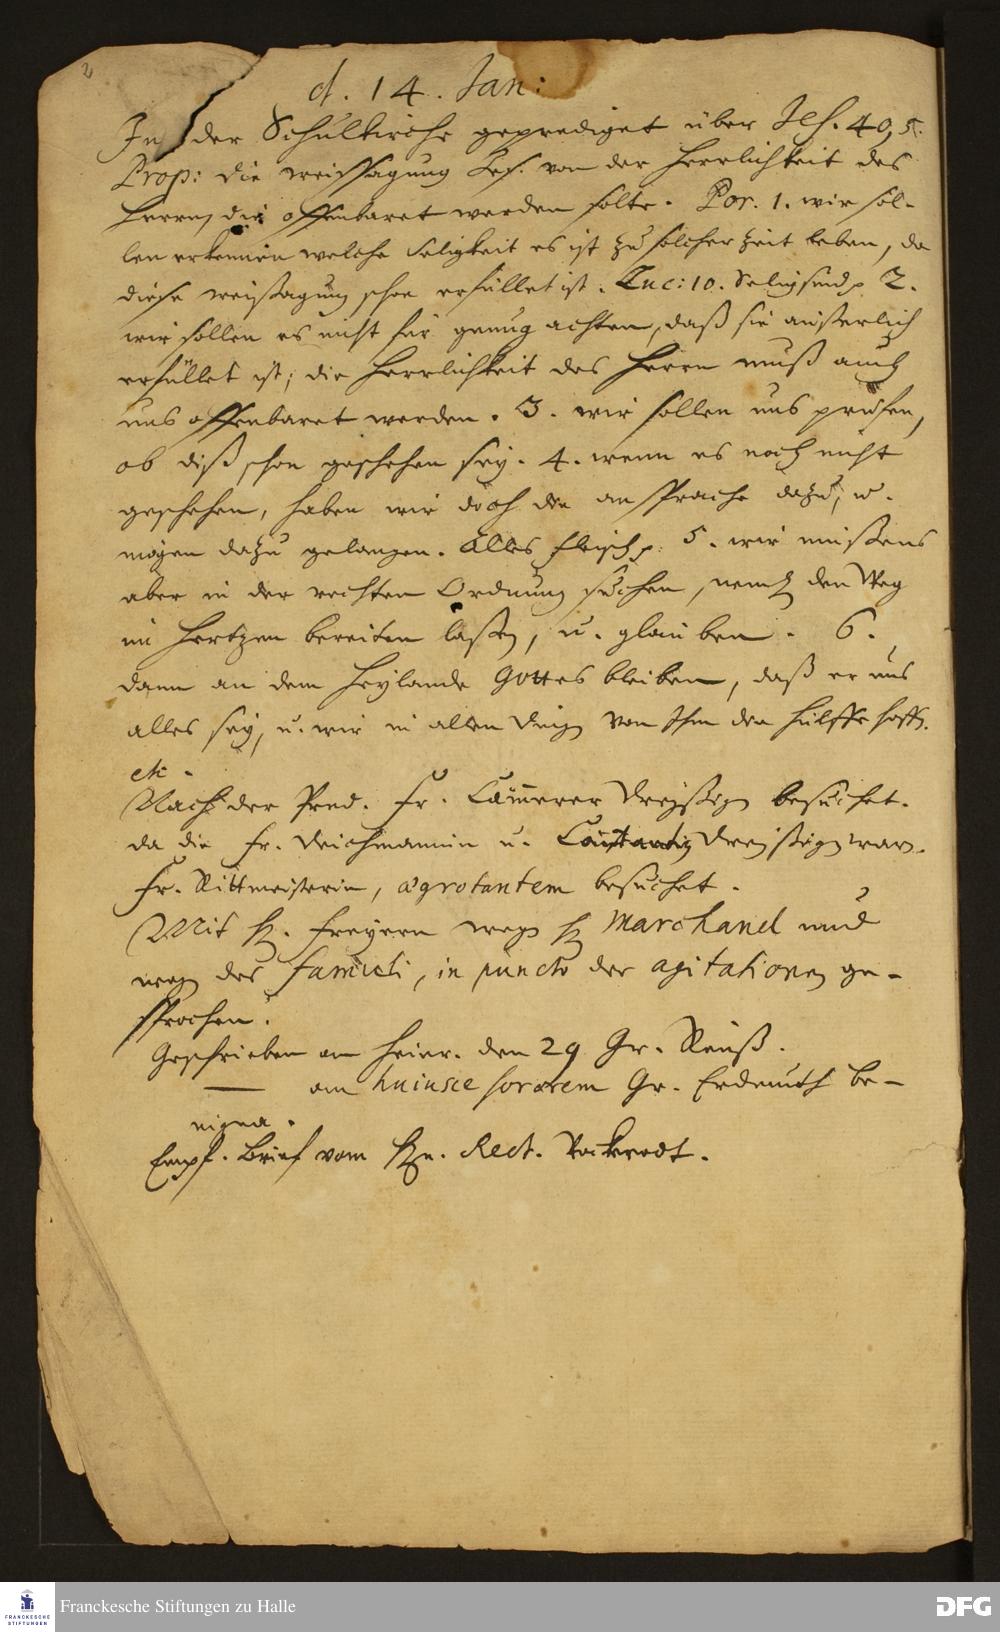 2
d. 14. Jan:
In der Schulkirche geprediget über Jes. 40, 5.
Prop: die weissagung Jes. von der Herrlichkeit des
Herrn, die offenbaret werden solte. Por. 1. wir sol-
len erkennen welche Seligkeit es ist zu solcher Zeit leben, da
diese weissagung schon erfüllet ist. Luc: 10. Selig sind p 2.
wir sollen es nicht für genug achten, daß sie äußerlich
erfüllet ist; die Herrlichkeit des Herrn muß auch
uns offenbaret werden. 3. wir sollen uns prüfen,
ob diß schon geschehen sey. 4. wenn es noch nicht
geschehen, haben wir doch die ansprache dazu, u.
mögen dazu gelangen. Alles Fleisch p. 5. wir müßens
aber in der rechten Ordnung suchen, neml. den Weg
im Hertzen bereiten laßen, u. glauben. 6.
dann an dem Heylande Gottes bleiben, daß er uns
alles sey, u. wir in allen dingen von Ihm die Hülffe hoffen.
etc.
Nach der Pred. Fr. Cämmerer Dreyßigen besuchet.
da die Fr. Deichmannin u. Dreyßigen war.
Fr. Rittmeisterin, aegrotantem besuchet.
Mit H. Freyern wegen H Marchand und
wegen des famuli, in puncto der agitationen ge-
sprochen.
Geschrieben an Heinr. den 29 Gr. Reuß.
— an huiusce sororem Gr. Erdmuth Be-
nigna.
Empf. Brief vom Hn. Rect. Vockerodt.
Franckesche Stiftungen zu Halle
FRANCKESCHE
STIFTUNGEN
DFG